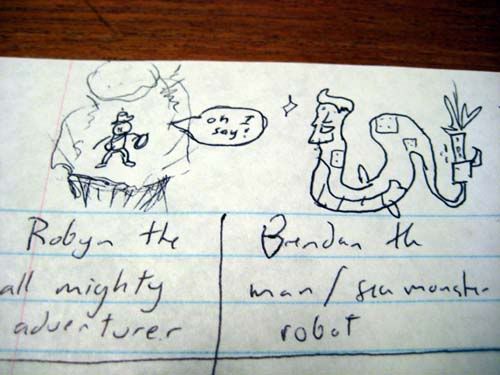 oh I
say!
Robyn the
all mighty
adventurer
Brendan the
man/sea monster
robot